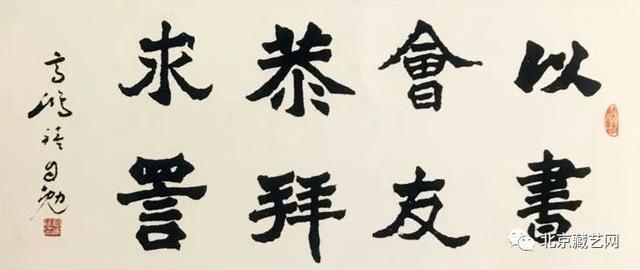 以書
會友
恭拜
求詈
高 自勉
北京藏艺网